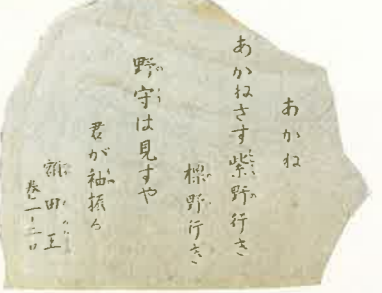 あかね
あかねさす紫野行き
標野行き
野守は見すや
君が袖振る
額田王
巻一・二〇